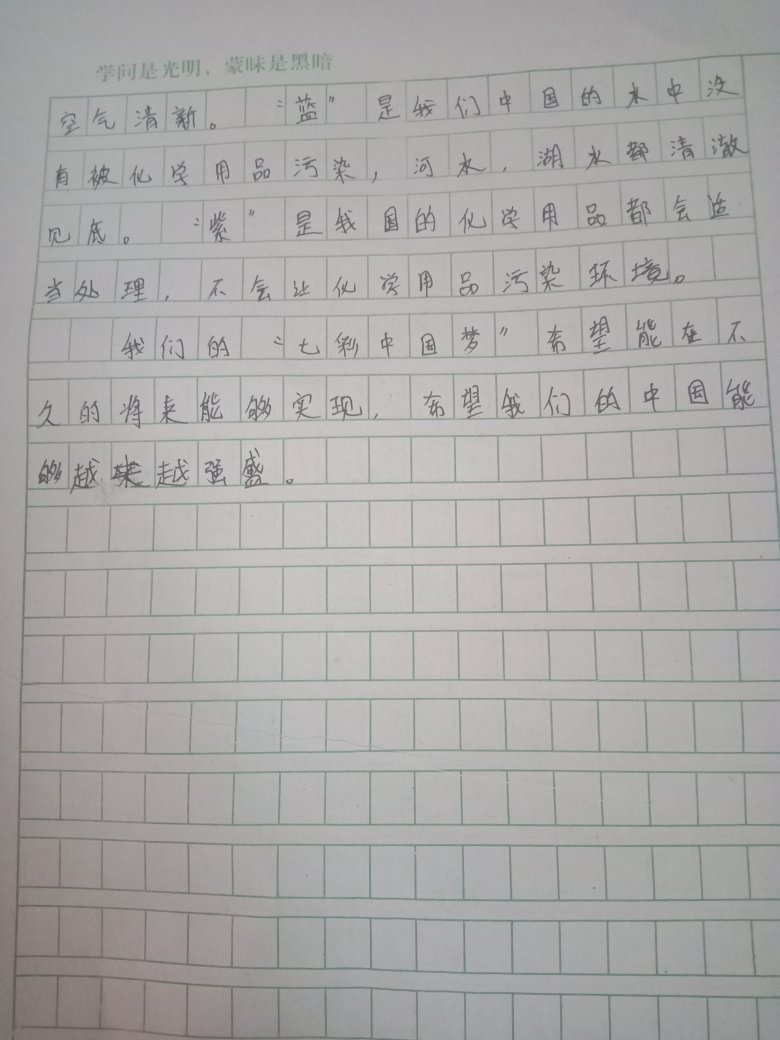 学问是光明，蒙昧是黑暗
空气清新。“蓝”是我们中国的水中没
有被化学用品污染，河水，湖水都清澈
见底。“紫”是我国的化学用品都会适
当处理，不会让化学用品污染环境。
我们的“七彩中国梦”希望能在不
久的将来能够实现，希望我们的中国能
够越来越强盛。